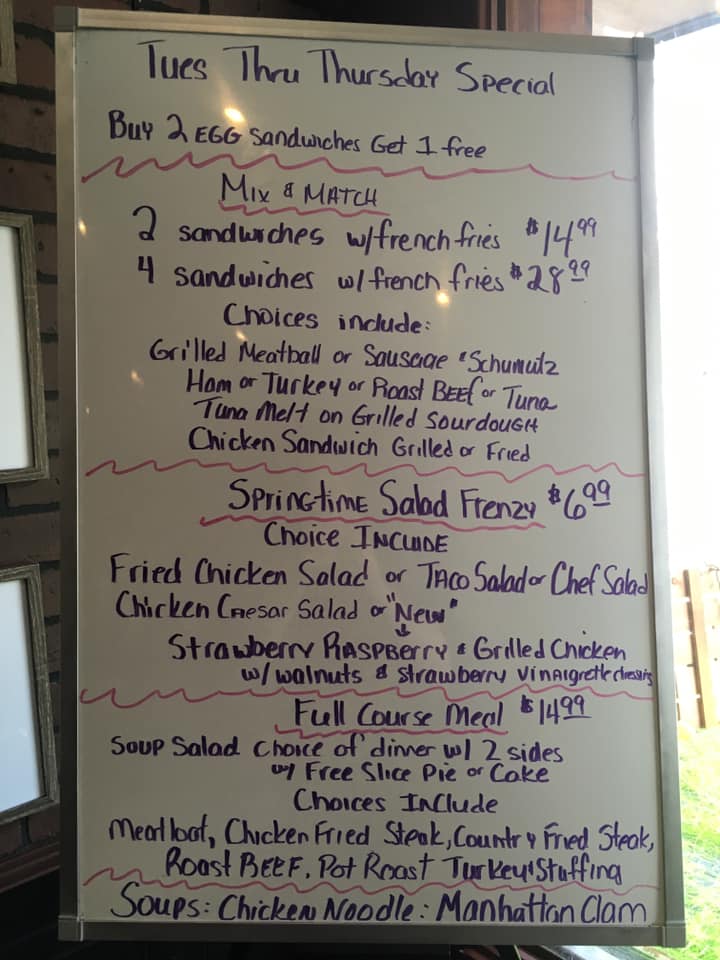 Tues Thru Thursday Special
Buy 2 EGG Sandwiches Get 1 free
Mix & MATCH
2 sandwiches w/french fries $14.99
4 sandwiches w/ french fries $28.99
Choices include:
Grilled Meatball or Sausage & Schumutz
Ham or Turkey or Roast BEEf or Tuna
Tuna Melt on Grilled SourdouGH
Chicken Sandwich Grilled or Fried
SpringTime Salad Frenzy $6.99
Choice INCLUDE
Fried Chicken Salad or TACO Salad or Chef Salad
Chicken CAesar Salad or "New"
Strawberry RASPBerry & Grilled Chicken
w/ walnuts & strawberry VinAigrette dressing
Full Course Meal $14.99
Soup Salad choice of dinner w/ 2 sides
w/ Free Slice Pie or Cake
Choices INclude
Meatloaf, Chicken Fried Steak, Country Fried Steak,
Roast BEEF, Pot Roast Turkey & Stuffing
Soups: Chicken Noodle: Manhattan Clam